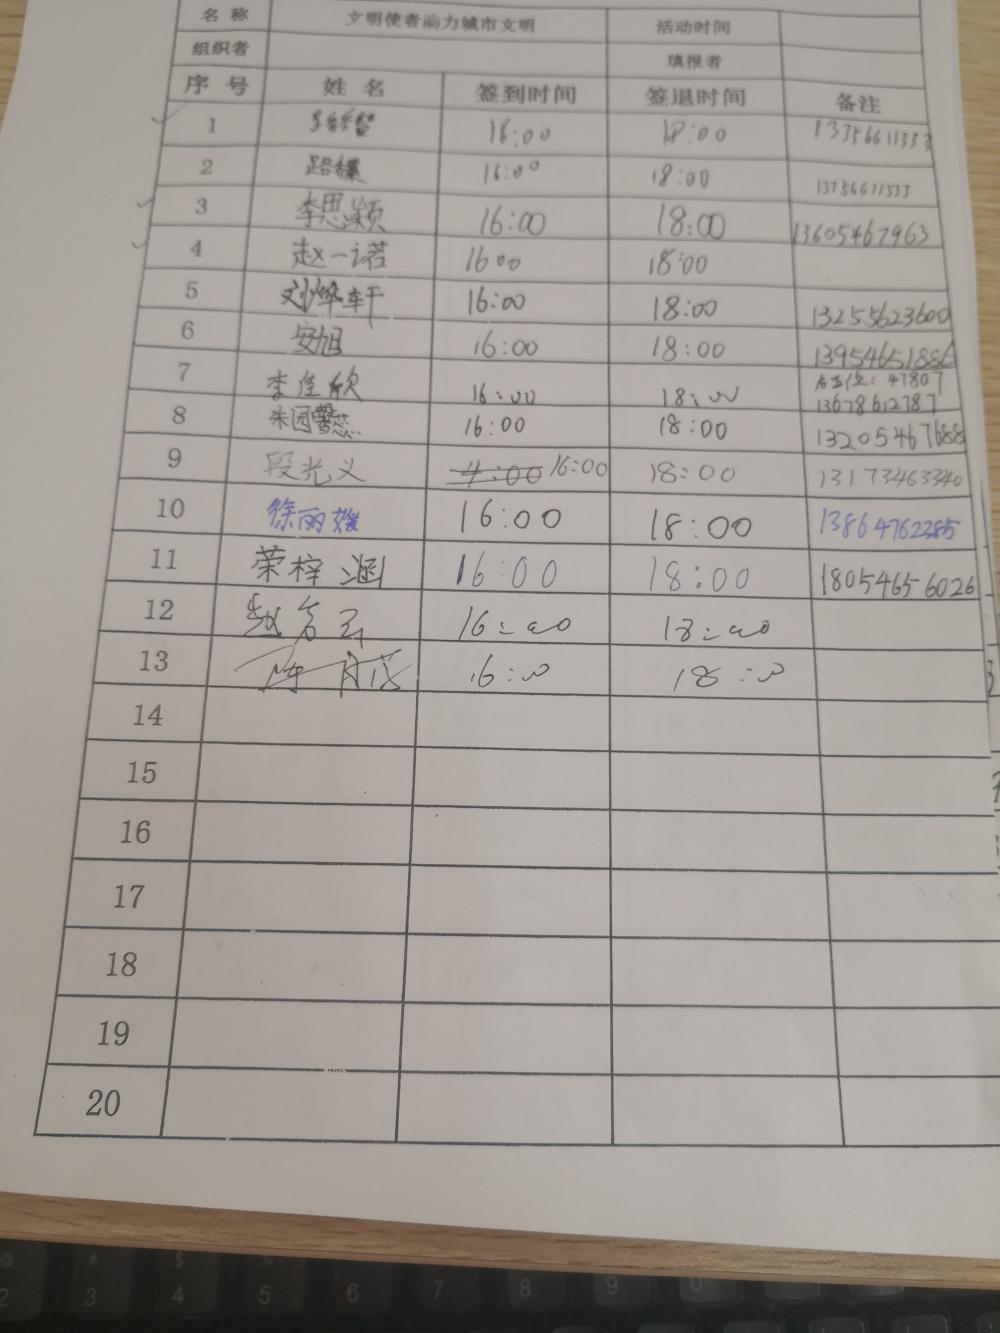 名 称 文明使者助力城市文明 活动时间
组织者 填报者
序 号 姓 名 签到时间 签退时间 备注
1 16:00 18:00 13356611333
2 16:00 18:00 13756611333
3 李思颖 16:00 18:00 13605467963
4 赵一诺 1600 18:00
5 刘烨轩 16:00 18:00 13255623600
6 安旭 16:00 18:00 13954651886
7 李佳欣 16:00 18:00 47807
13678612787
8 朱园馨蕊 16:00 18:00 13205467688
9 段光义 4:00 16:00 18:00 13173463340
10 徐丽媛 16:00 18:00 13864762385
11 荣梓涵 16:00 18:00 18054656026
12 16:00 18:00
13 16:00 18:00
14
15
16
17
18
19
20